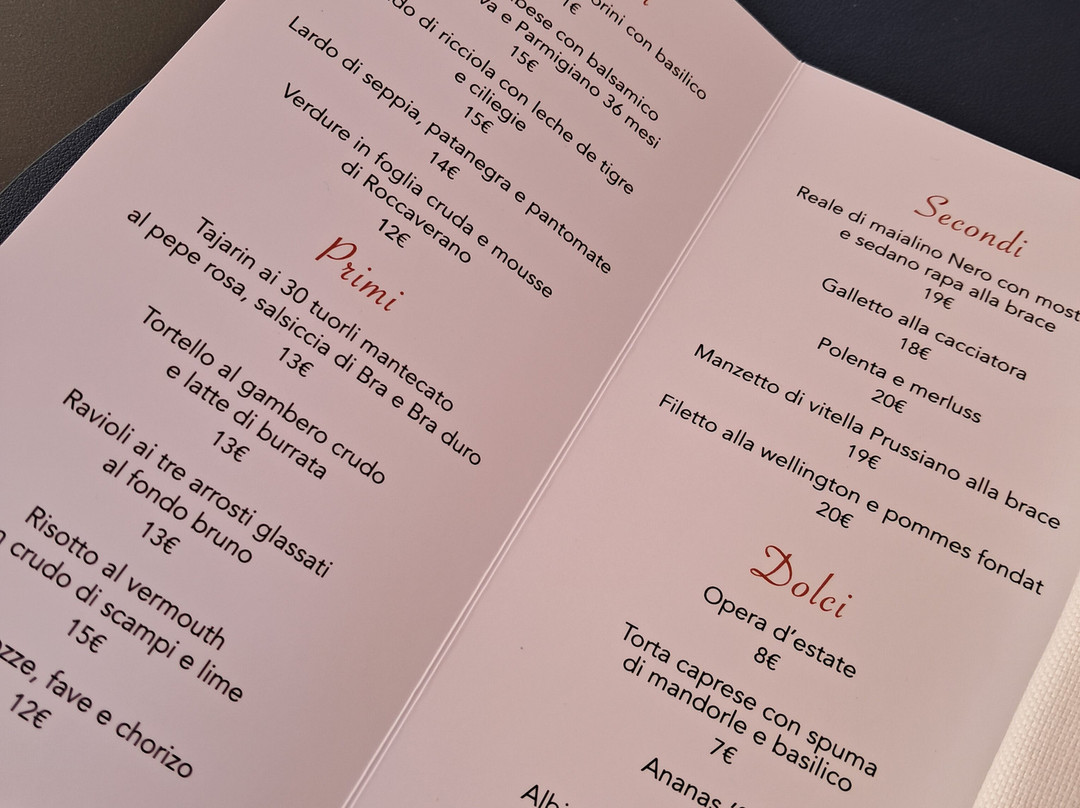 con basilico
1€
con balsamico
e Parmigiano 36 mesi
15€
di ricciola con leche de tigre
e ciliegie
15€
Lardo di seppia, patanegra e pantomate
14€
Verdure in foglia cruda e mousse
di Roccaverano
12€
Primi
Tajarin ai 30 tuorli mantecato
al pepe rosa, salsiccia di Bra e Bra duro
13€
Tortello al gambero crudo
e latte di burrata
13€
Ravioli ai tre arrosti glassati
al fondo bruno
13€
Risotto al vermouth
crudo di scampi e lime
15€
fave e chorizo
12€
Secondi
Reale di maialino Nero con most
e sedano rapa alla brace
19€
Galletto alla cacciatora
18€
Polenta e merluss
20€
Manzetto di vitella Prussiano alla brace
19€
Filetto alla wellington e pommes fondat
20€
Dolci
Opera d'estate
8€
Torta caprese con spuma
di mandorle e basilico
7€
Ananas